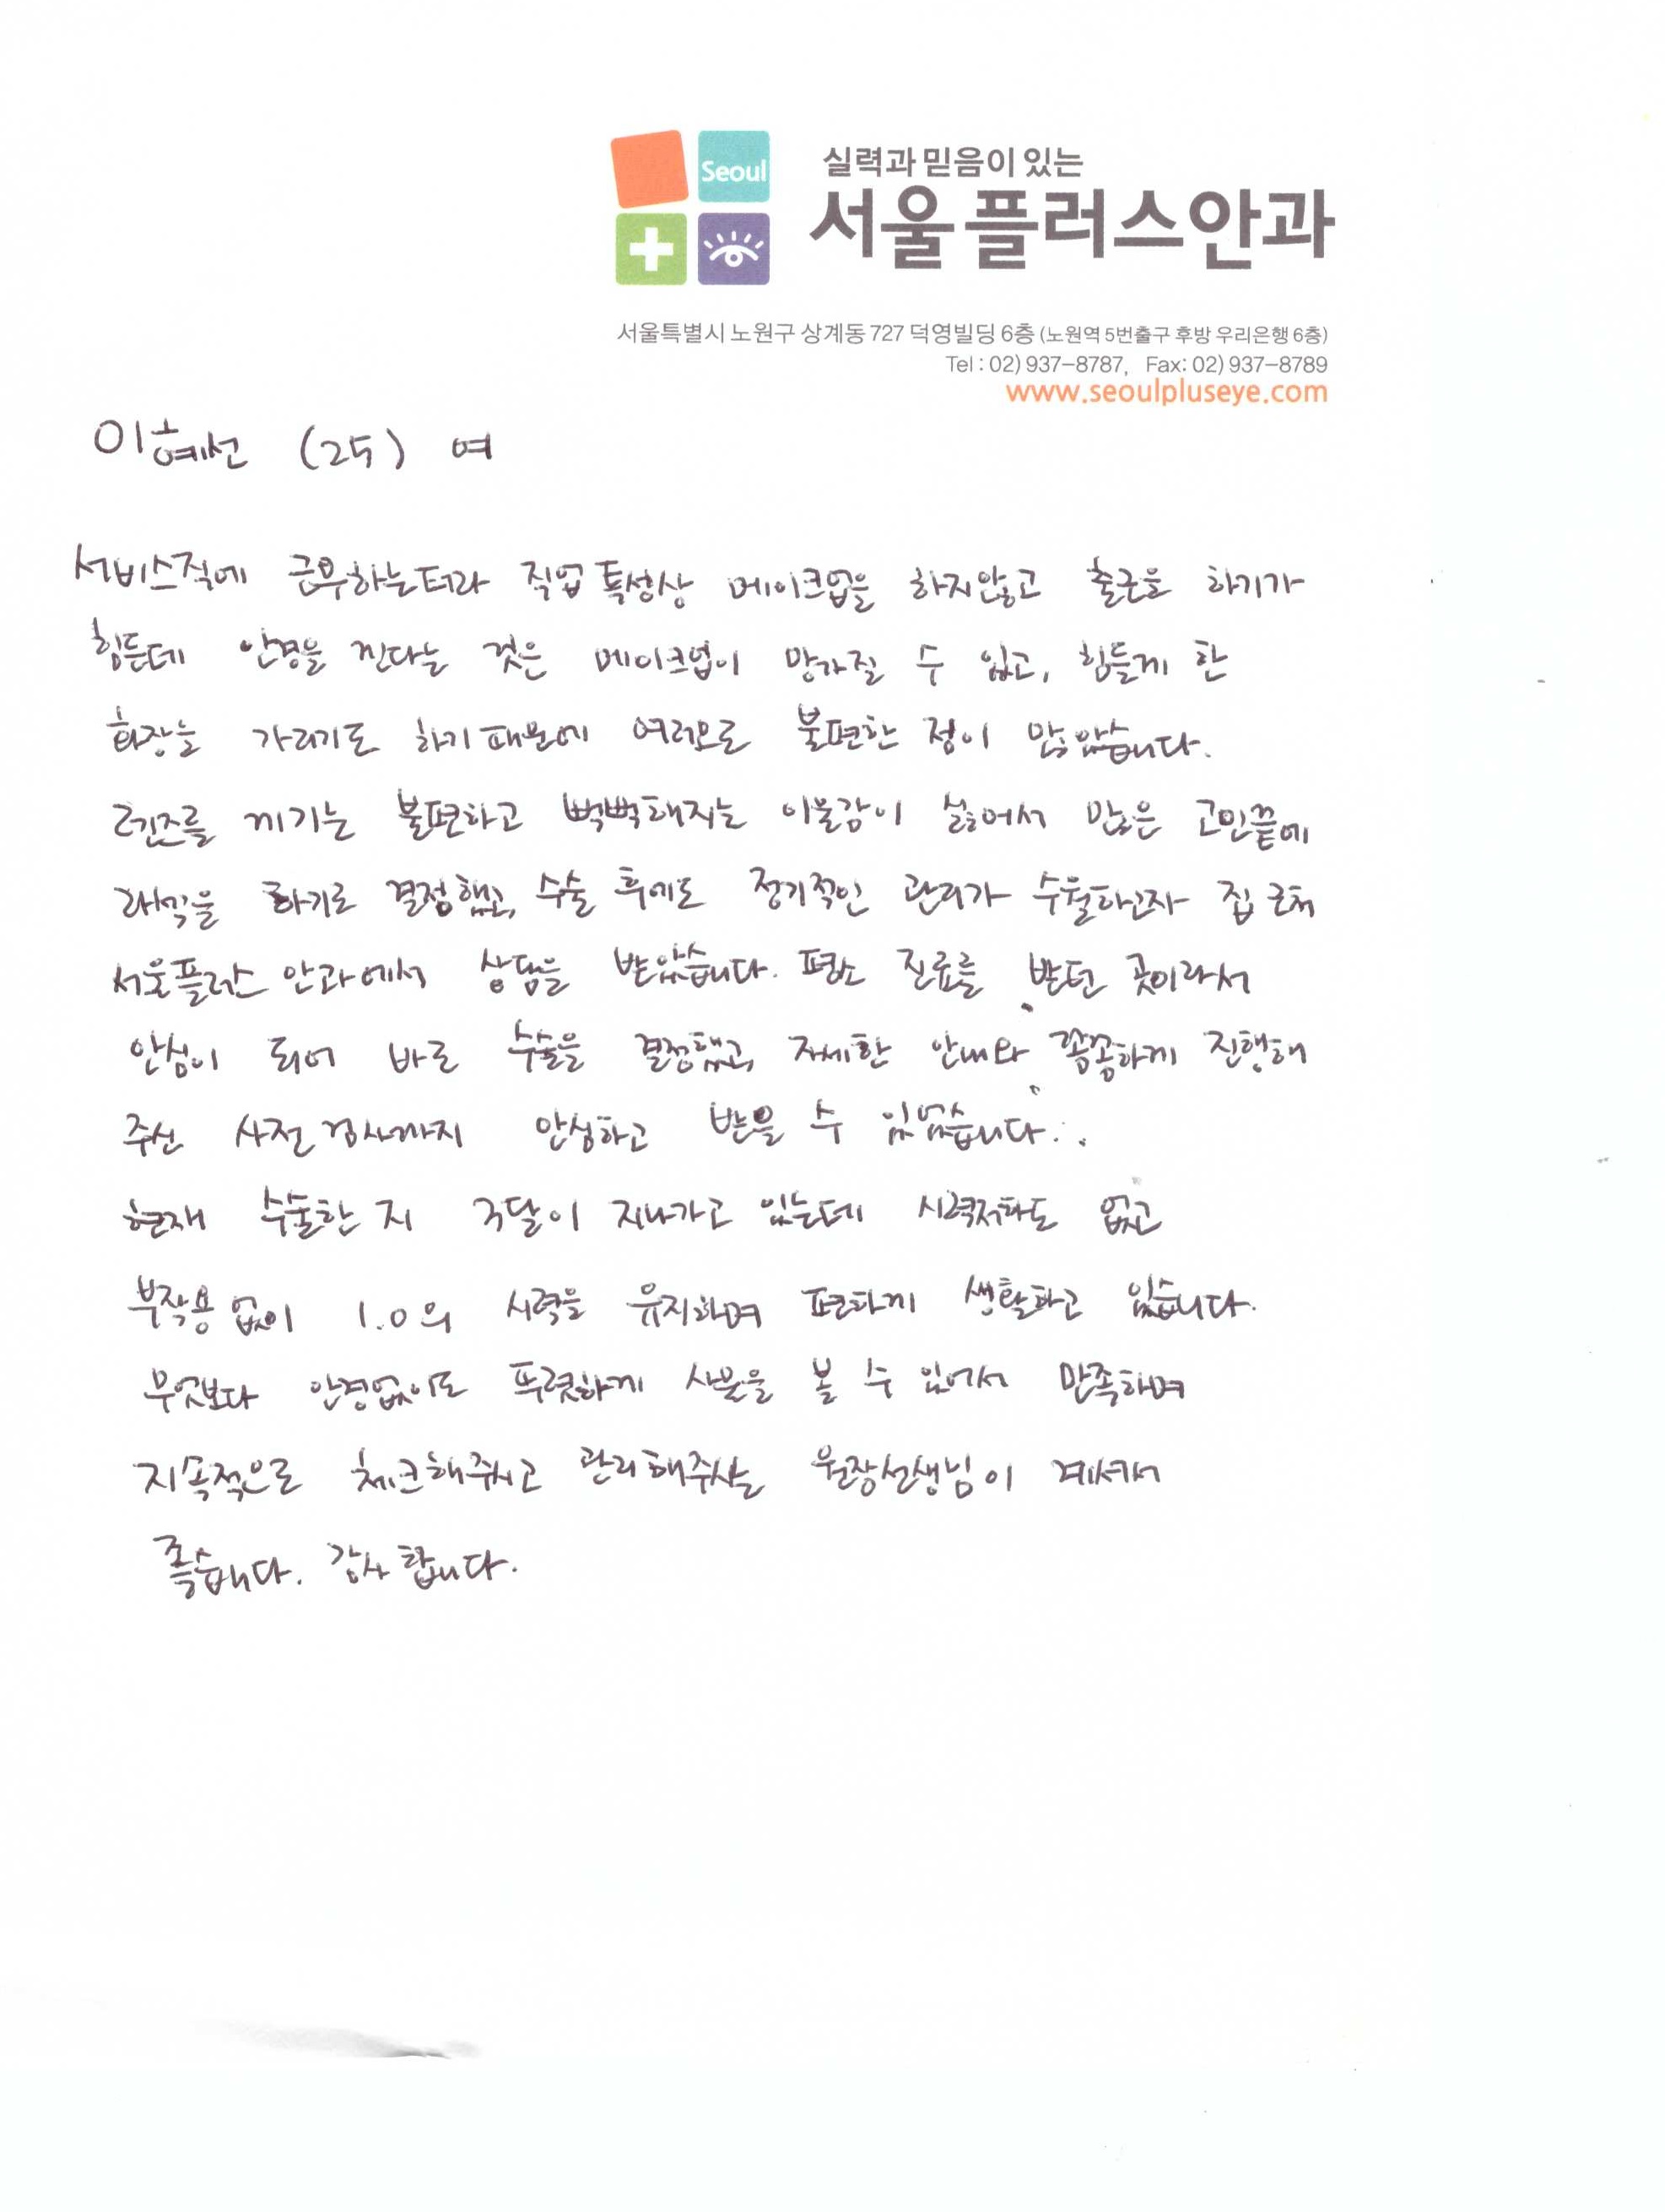 Seoul
실력과 믿음이 있는
서울플러스안과
서울특별시 노원구 상계동 727 덕영빌딩 6층 (노원역 5번출구 후방 우리은행 6층)
Tel : 02) 937-8787, Fax: 02) 937-8789
www.seoulpluseye.com
이혜선 (25) 여
서비스직에 근무하는터라 직업 특성상 메이크업을 하지않고 출근을 하기가
힘든데 안경을 낀다는 것은 메이크업이 망가질 수 있고, 힘들게 한
화장을 가리기도 하기 때문에 여러모로 불편한 점이 많았습니다.
렌즈를 끼기는 불편하고 뻑뻑해지는 이물감이 싫어서 많은 고민끝에
라식을 하기로 결정했고, 수술 후에도 정기적인 관리가 수월하고자 집 근처
서울플러스 안과에서 상담을 받았습니다. 평소 진료를 받던 곳이라서
안심이 되어 바로 수술을 결정했고, 자세한 안내와 꼼꼼하게 진행해
주신 사전 검사까지 안심하고 받을 수 있었습니다.
현재 수술한 지 3달이 지나가고 있는데 시력저하도 없고
부작용 없이 1.0의 시력을 유지하며 편하게 생활하고 있습니다.
무엇보다 안경없이도 뚜렷하게 사물을 볼 수 있어서 만족하며
지속적으로 체크해주시고 관리해주시는 원장선생님이 계셔서
좋습니다. 감사합니다.